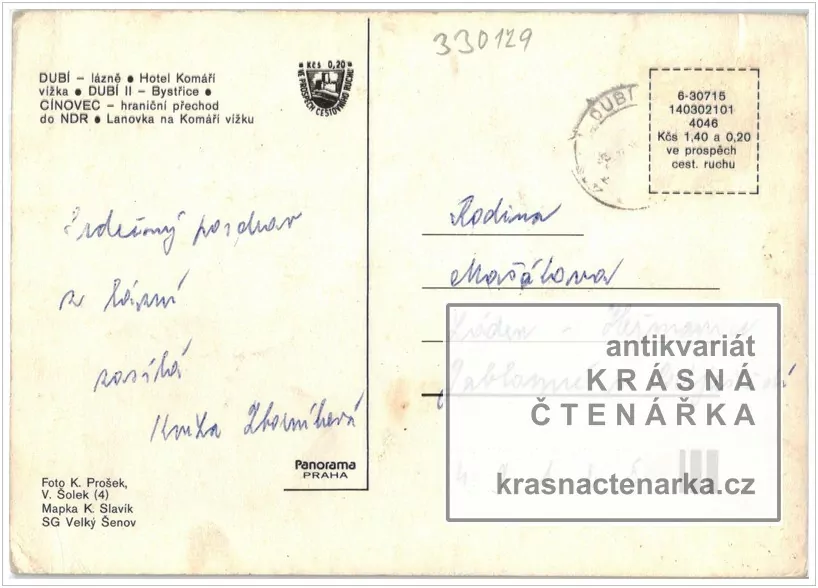 330129
DUBÍ – lázně ● Hotel Komáří
vížka ● DUBÍ II – Bystřice ●
CÍNOVEC – hraniční přechod
do NDR ● Lanovka na Komáří vížku
Kčs 0,20
VE PROSPĚCH CESTOVNÍHO RUCHU
DUBÍ
6-30715
140302101
4046
Kčs 1,40 a 0,20
ve prospěch
cest. ruchu
Srdečný pozdrav
z lázní
zasílá
Květa
Rodina
Mašálova
antikvariát
KRÁSNÁ
ČTENÁŘKA
krasnactenarka.cz
Panorama
PRAHA
Foto K. Prošek,
V. Šolek (4)
Mapka K. Slavík
SG Velký Šenov